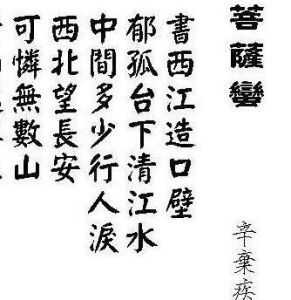 菩薩蠻
辛棄疾
書西江造口壁
郁孤台下清江水
中間多少行人淚
西北望長安
可憐無數山